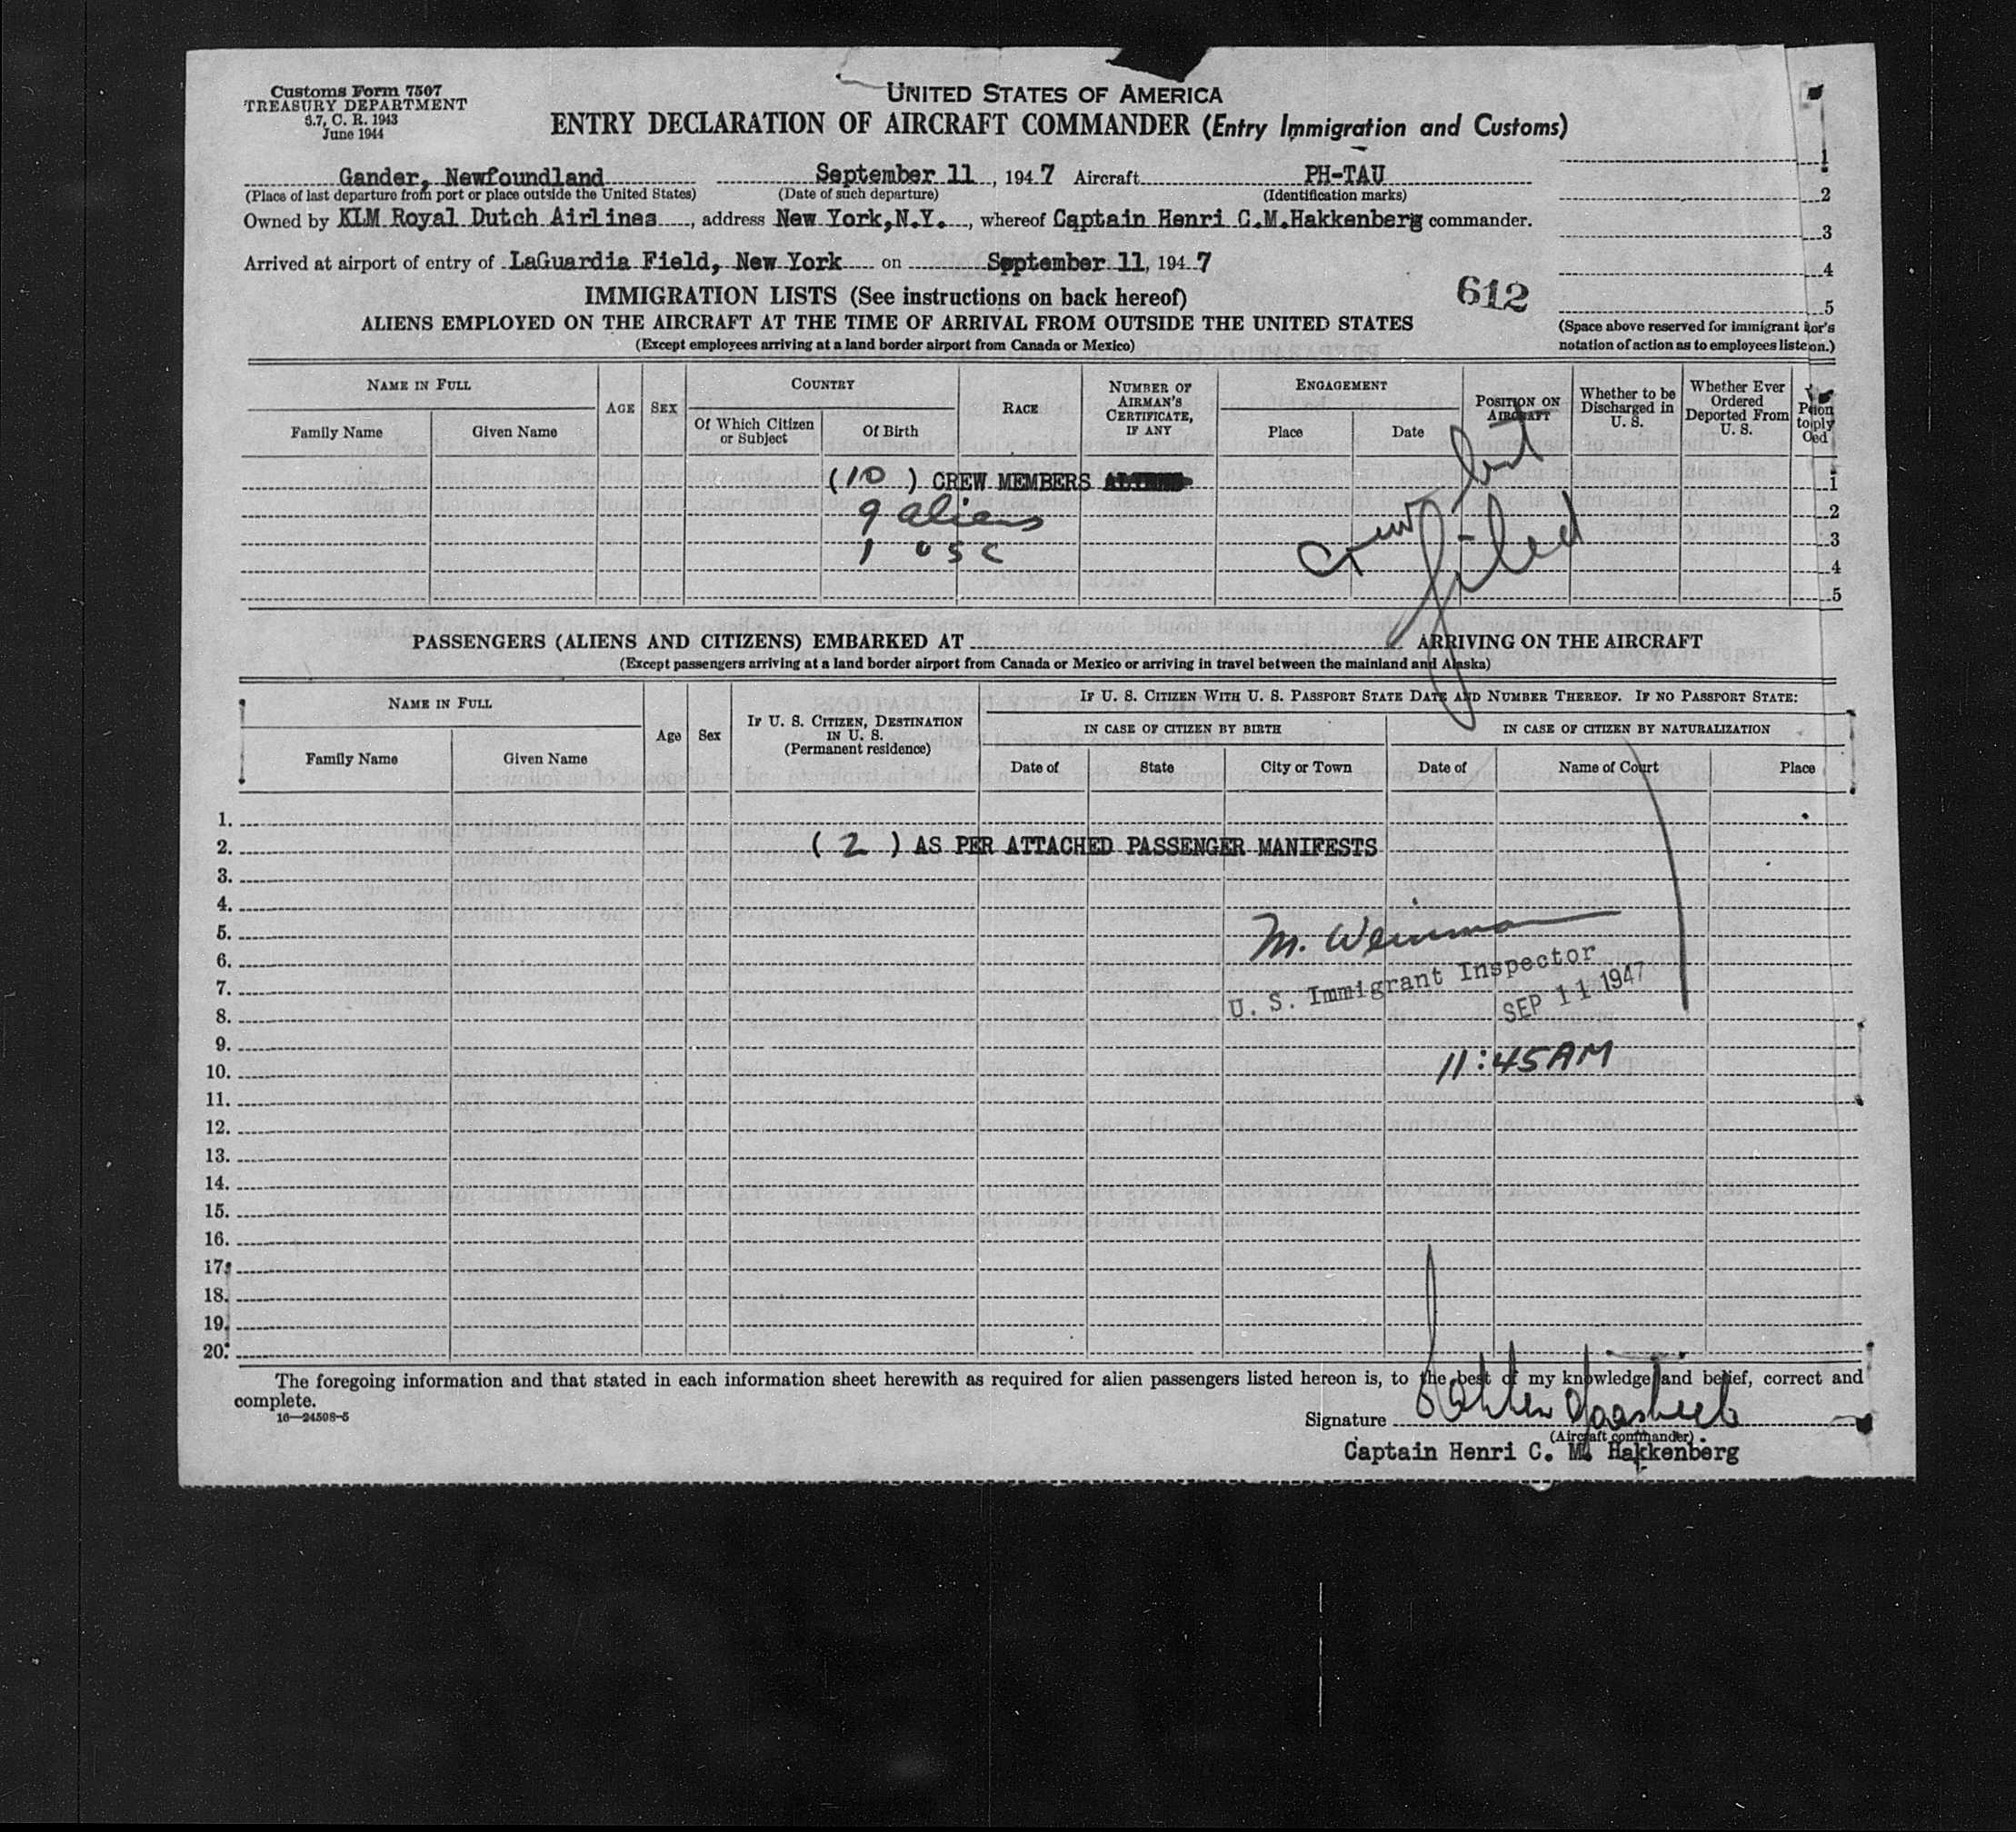 Customs Form 7507
TREASURY DEPARTMENT
6.7, C. R. 1943
June 1944
UNITED STATES OF AMERICA
ENTRY DECLARATION OF AIRCRAFT COMMANDER (Entry Immigration and Customs)
Gander, Newfoundland September 11, 1947 Aircraft PH-TAU
(Place of last departure from port or place outside the United States) (Date of such departure) (Identification marks)
Owned by KLM Royal Dutch Airlines, address New York, N.Y., whereof Captain Henri C.M.Hakkenberg commander.
Arrived at airport of entry of LaGuardia Field, New York on September 11, 1947
1
2
3
4
5
612
IMMIGRATION LISTS (See instructions on back hereof)
ALIENS EMPLOYED ON THE AIRCRAFT AT THE TIME OF ARRIVAL FROM OUTSIDE THE UNITED STATES
(Except employees arriving at a land border airport from Canada or Mexico)
(Space above reserved for immigrant
notation of action as to employees
NAME IN FULL
Family Name Given Name
AGE SEX
COUNTRY
Of Which Citizen or Subject
Of Birth
RACE
NUMBER OF AIRMAN'S CERTIFICATE, IF ANY
ENGAGEMENT
Place Date
POSITION ON AIRCRAFT
Whether to be Discharged in U. S.
Whether Ever Ordered Deported From U. S.
(10) CREW MEMBERS
9 aliens
1 USC
Crew list
filed
1
2
3
4
5
PASSENGERS (ALIENS AND CITIZENS) EMBARKED AT ARRIVING ON THE AIRCRAFT
(Except passengers arriving at a land border airport from Canada or Mexico or arriving in travel between the mainland and Alaska)
NAME IN FULL
Family Name Given Name
Age Sex
IF U. S. CITIZEN, DESTINATION IN U. S. (Permanent residence)
IF U. S. CITIZEN WITH U. S. PASSPORT STATE DATE AND NUMBER THEREOF. IF NO PASSPORT STATE:
IN CASE OF CITIZEN BY BIRTH IN CASE OF CITIZEN BY NATURALIZATION
Date of State City or Town Date of Name of Court Place
1.
2. (2) AS PER ATTACHED PASSENGER MANIFESTS
3.
4.
5. M. Weinman
6. U. S. Immigrant Inspector
7. SEP 11 1947
8.
9.
10. 11:45AM
11.
12.
13.
14.
15.
16.
17.
18.
19.
20.
The foregoing information and that stated in each information sheet herewith as required for alien passengers listed hereon is, to the best of my knowledge and belief, correct and
complete.
16—24508-5
Signature
(Aircraft commander)
Captain Henri C. M. Hakkenberg